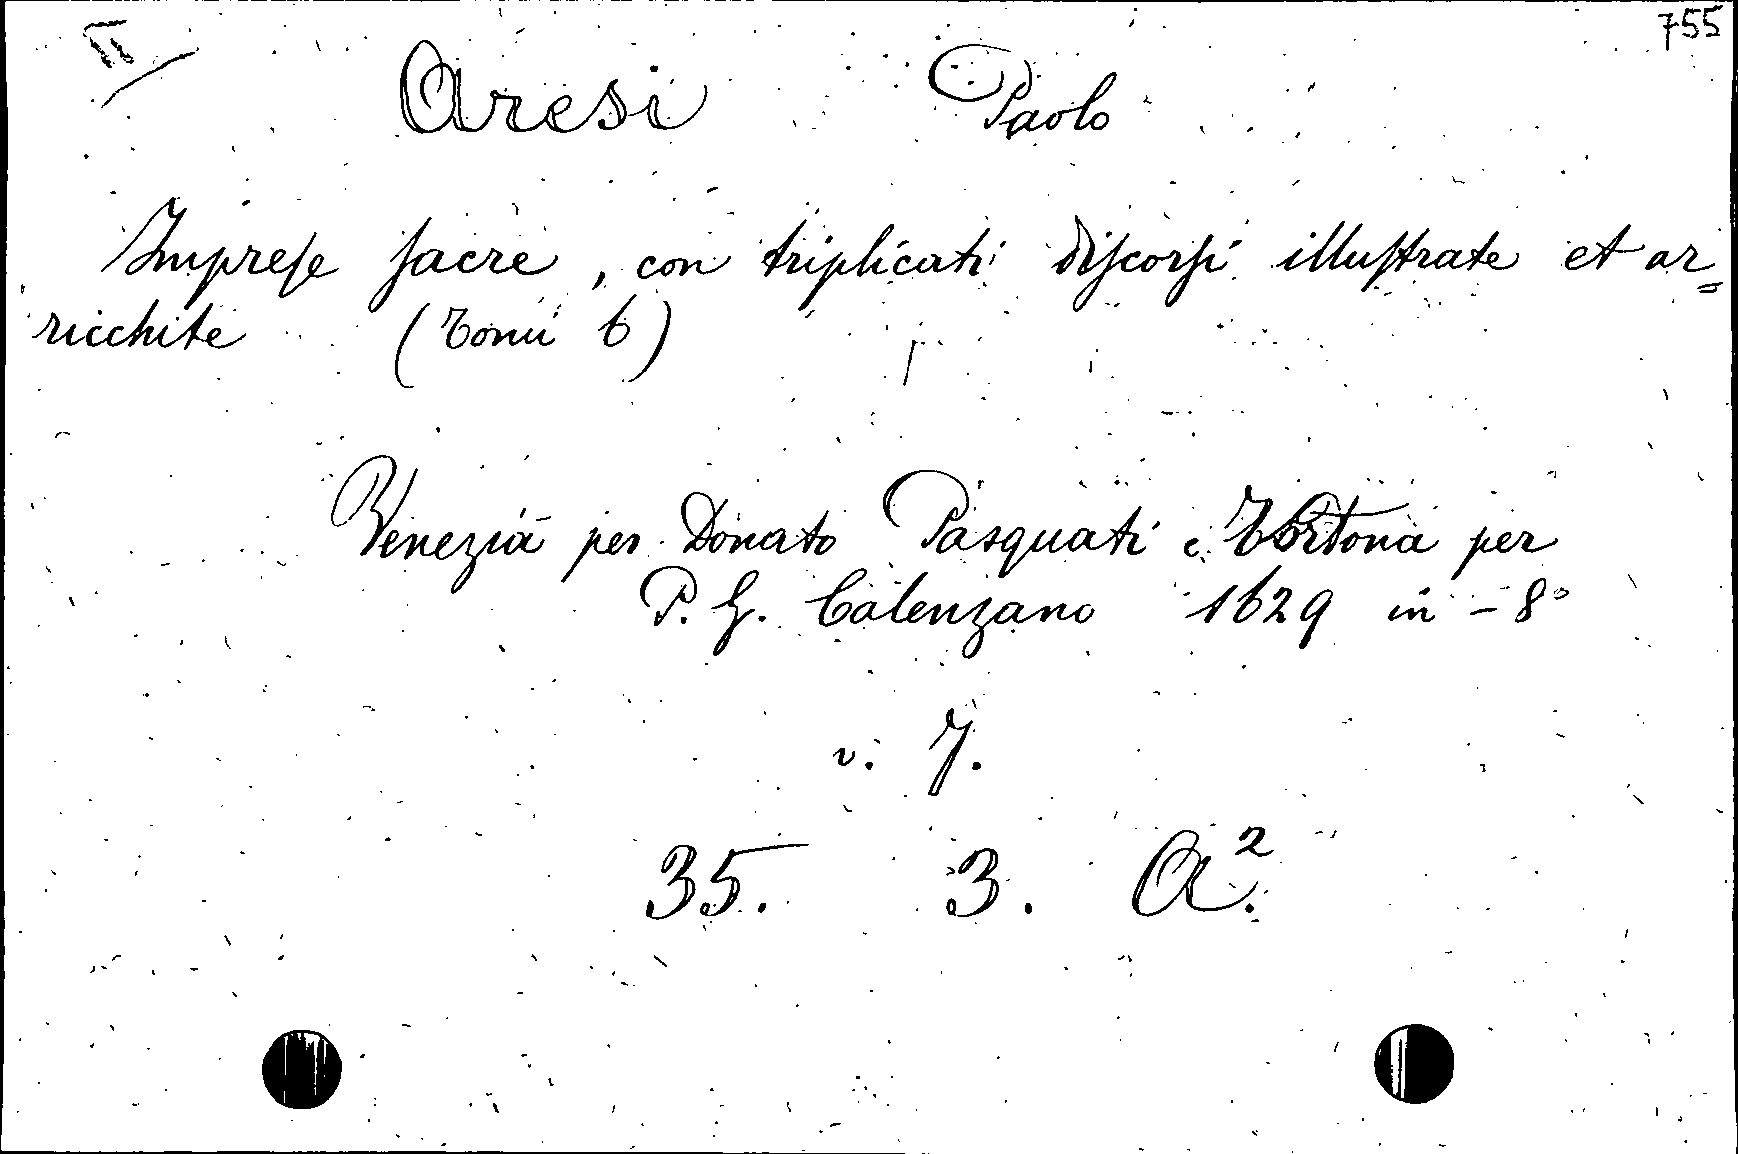 755
II
Aresi Paolo
Impreſe ſacre, con triplicati diſcorſi illuſtrate et ar=
ricchite (Tomi 6)
Venezia per Donato Pasquati e Tortona per
P. G. Calenzano 1629 in-8°
v. 7.
35. 3. A².